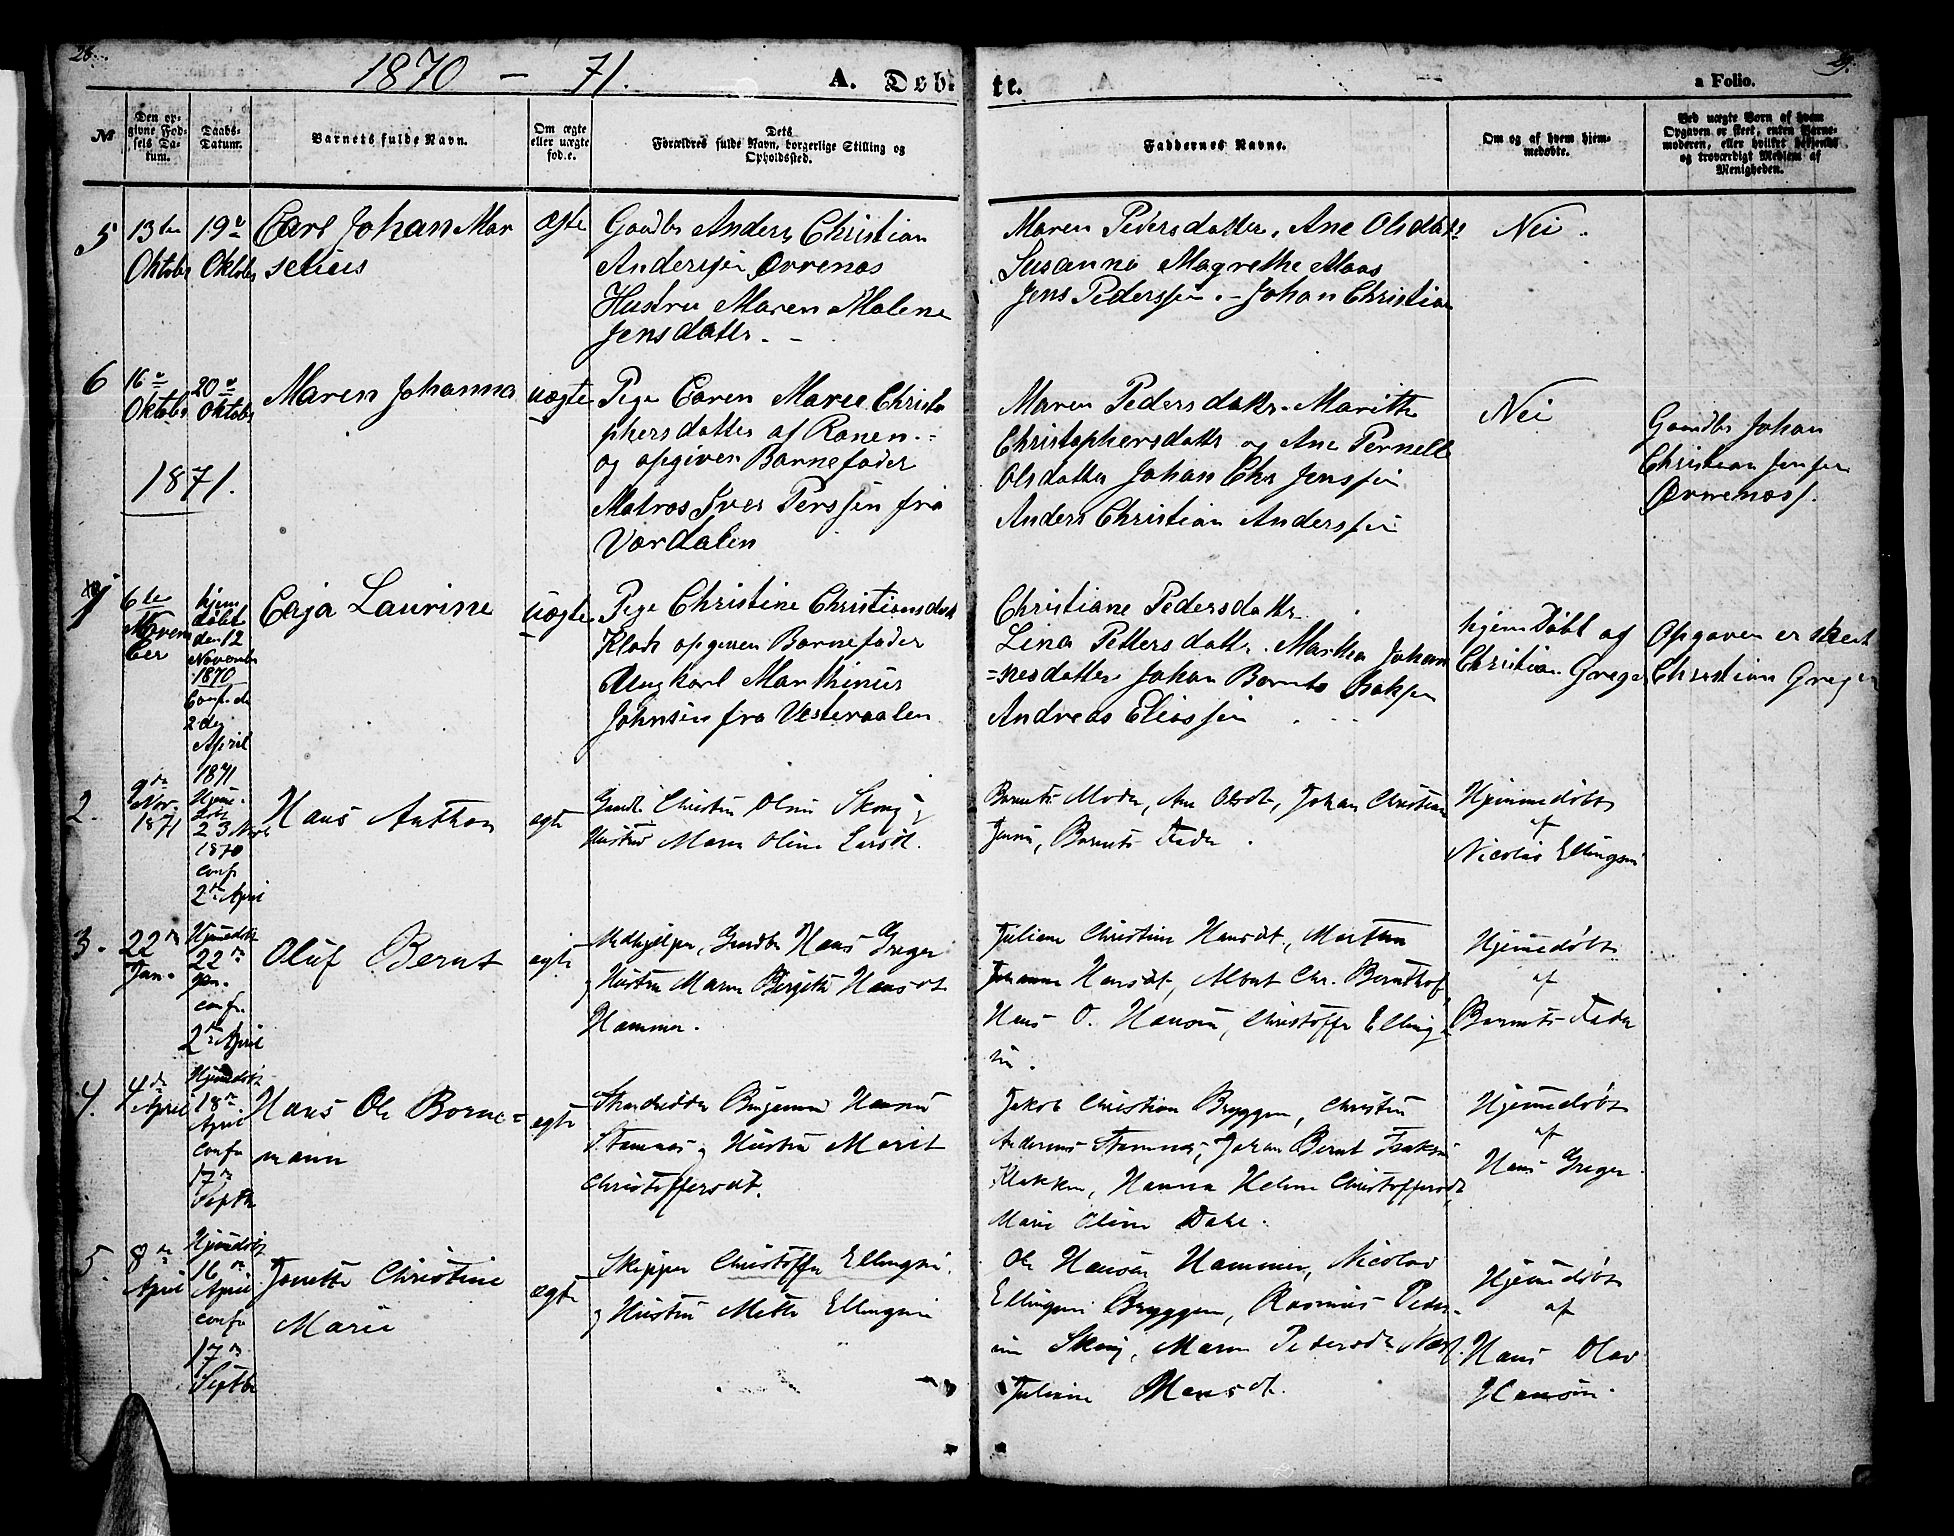 28.
1870 - 71.
A. Døb-
te.
a Folio.
29.
№
Den op-
givne Fød-
sels Da-
tum.
Daabs-
Datum.
Barnets fulde Navn.
Om ægte
eller uægte
fød.e.
Dets
Forældres fulde Navn, borgerlige Stilling og
Opholdssted.
Faddernes Navne.
Om og af hvem hjem-
medøbte.
Ved uægte Børn af hvem
Opgaven er skeet, enten Barne-
moderen, eller hvilket bekjendt
og troværdigt Medlem af
Menigheden.
5
13de
Oktober
19e
Oktober
Carl Johan Mar
selius
ægte
Gaardbr Anders Christian
Anderssen Ørrenæs
Hustru Maren Malene
Jensdattr.
Maren Pedersdatter, Ane Olsdattr
Susanna Magrethe Maas
Jens Pederssen. - Johan Christian
Nei.
6
16e
Oktober
20e
Oktober
Maren Johanna
uægte
Pige Caren Marie Christo
phersdatter af Ranen.
og opgiven Barnefader
Matros Iver Perssen fra
Værdalen
Maren Pedersdattr. Marithe
Christophersdattr og Ane Pernelle
Olsdatter Johan Chr Jenssen
Anders Christian Anderssen
Nei
Gaardbr Johan
Christian Jenssen
Ørrenæss.
1871.
1
6te
Novem
ber
hjem
døbt
den 12
November
1870
Conf. de
2den
April
1871
Caja Laurine
uægte
Pige Christine Christiansdatt
Klak opgiven Barnefader
Ungkarl Marthinus
Johnsen fra Vesteraalen
Christiane Pedersdattr
Lina Pettersdattr. Martha Johan
=nesdatter Johan Bernt Isaksen
Andreas Eliassen
hjemdøbt af
Christian Greger
Opgaven er skeet
Christian Greger
2.
9de
Nov.
1871
Hjemme-
døbt
23 Nov
1870
conf.
2den April
Hans Anthon
egte
Gaardb. Christen Olsen Skong
Hustru Maren Oline Larsdt.
Barnets Moder, Ane Olsdt, Johan Christian
Jensen, Barnets Fader.
Hjemmedøbt
af
Nicolai Ellingsen
3.
22de
Jan.
Hjemmedøbt
22de
Jan.
conf.
2den April
Oluf Bernt
egte
Medhjelper, Gaardbr Hans Greger
og Hustru Maren Bergitte Hansdt
Hammer.
Juliane Christine Hansdt, Martha
Johanna Hansdt, Albert Chr. Bernthof,
Hans O. Hansen, Christoffer Elling-
sen.
Hjemmedøbt
af
Barnets Fader
4.
4de
April
Hjemmedøbt
18de
April
confr
17de
Septbr
Hans Ole Borne=
mann
egte
Strandsidder Benjamin Hansen
Stamnæs og Hustru Marit
Christoffersdt.
Jakob Christian Bryggen, Christen
Andersen Stamnæs, Johan Bernt Isaksen
Klakken, Hanna Helene Christoffersdt,
Marie Oline Dahl.
Hjemmedøbt
af
Hans Greger
5.
8de
April
Hjemmedøbt
16de
April
confr
17de
Septbr
Jonette Christine
Marie
ægte
Skipper Christoffer Ellingsen
og Hustru Mette Ellingsen
Ole Hansen Hammer, Nicolai
Ellingsen Bryggen, Rasmus Peder-
sen Skong, Maren Pedersdt Næss.
Juliane Hansdt.
Hjemmedøbt
af
Hans Olav
Hansen.